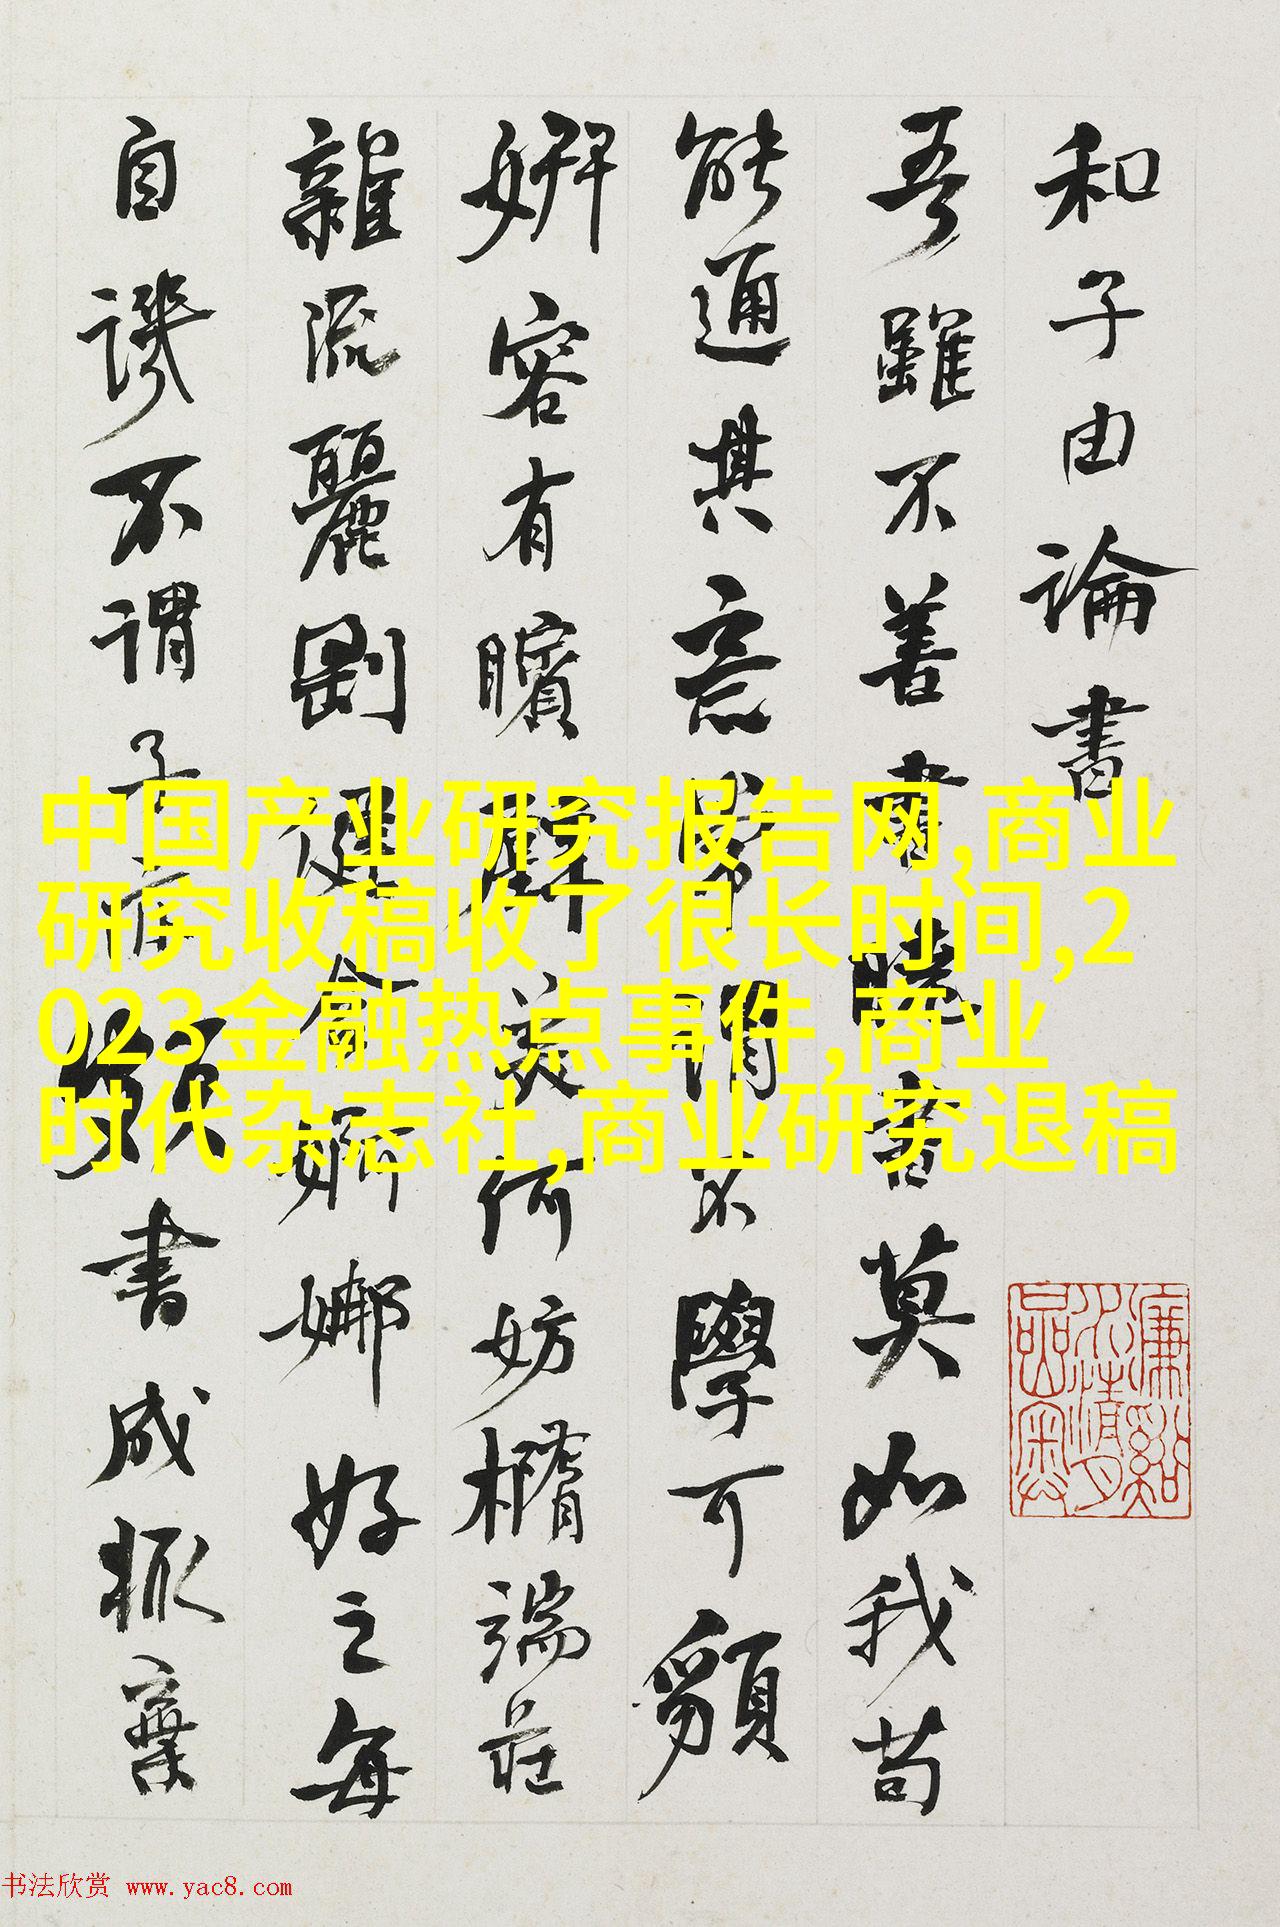 和子由論書
吾雖不善書曉書莫如我苟
能通其意常謂不學可貌
妍容有矉璧美何妨橢端莊
雜流麗剛健含婀娜好之每
自譏不謂子亦頗書成輒棄
中国产业研究报告网,商业
研究收稿收了很长时间,2
023金融热点事件,商业
时代杂志社,商业研究退稿
书法欣赏 www.yac8.com